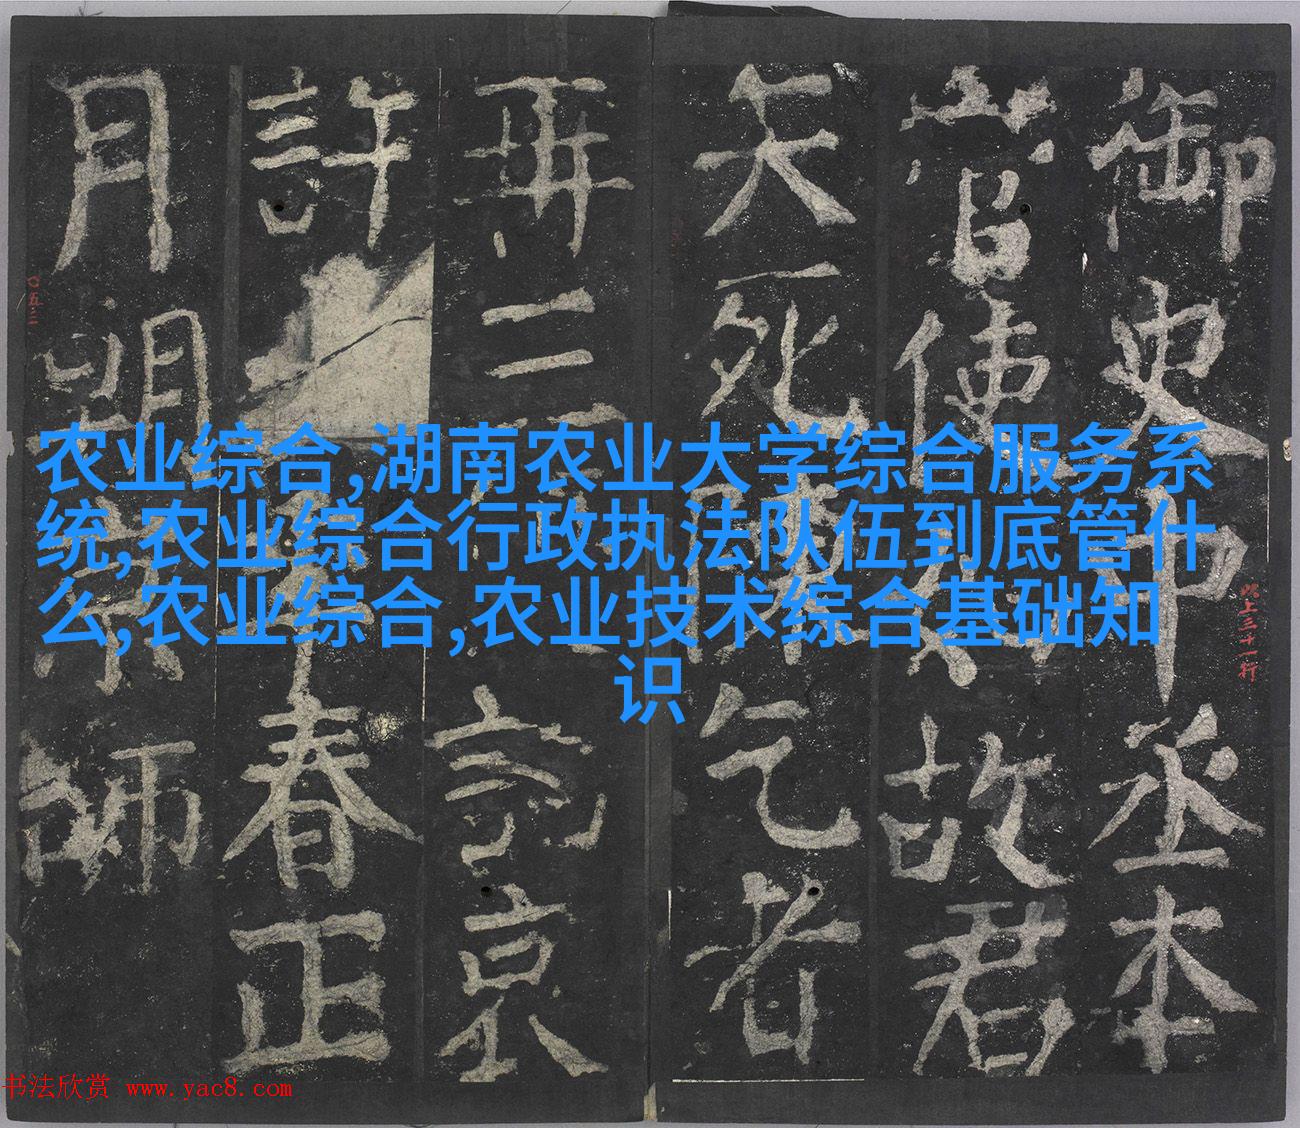 农业综合,湖南农业大学综合服务系
统,农业综合行政执法队伍到底管什
么,农业综合,农业技术综合基础知
识
御史中丞本
故君
矢死陳乞者
再三京
許春正
月朝京師
〇五三
此上三十一行
书法欣赏 www.yac8.com